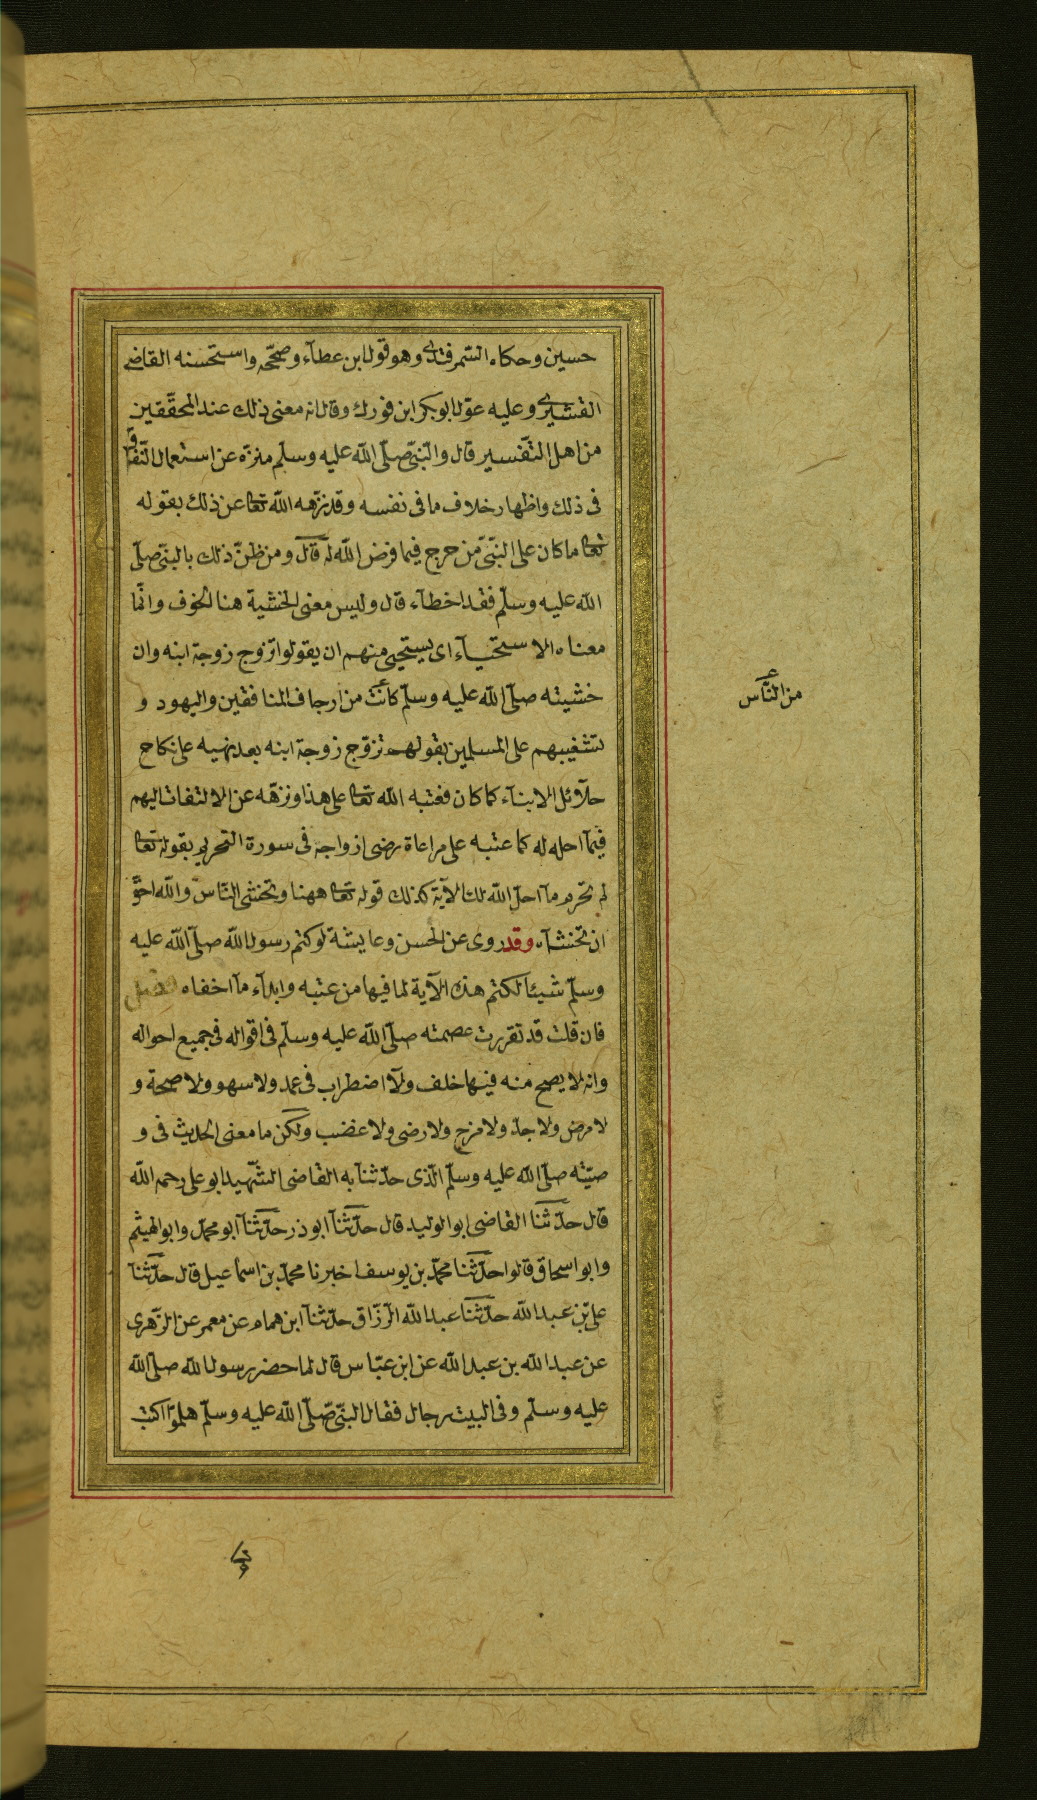 حسين وحكاه السمرقندى وهو قول ابن عطآء وصحّحه واستحسنه القاضى
القشيرى وعليه عوّل ابو بكر ابن فورك وقال انه معنى ذلك عند المحقّقين
من اهل التّفسير قال والنّبىّ صلّى اللّه عليه وسلّم منزّه عن استعمال النّفاق
فى ذلك واظهار خلاف ما فى نفسه وقد نزّهه اللّه تعا عن ذلك بقوله
تعا ما كان على النّبىّ من حرج فيما فرض اللّه له قال ومن ظنّ ذلك بالنبىّ صلّى
اللّه عليه وسلّم فقد اخطآء قال وليس معنى الخشية هنا الخوف وانّما
معناه الاستحيآء اى يستحيى منهم ان يقولوا تزوج زوجة ابنه وان
خشيته صلّى اللّه عليه وسلّم كانت من ارجاف المنافقين واليهود و
تشغيبهم على المسلمين بقولهم تزوّج زوجة ابنه بعد نهيه على نكاح
حلآئل الابنآء كما كان فعتبه اللّه تعا على هذا ونزّهه عن الالتفات اليهم
فيمآ احله له كما عتبه على مراعاة رضى ازواجه فى سورة التحريم بقوله تعا
لم تحرم مآ احلّ اللّه لك الآية كذلك قوله تعا ههنا وتخشى النّاس واللّه احقّ
ان تخشآه وقد روى عن الحسن وعايشة لو كتم رسول اللّه صلّى اللّه عليه
وسلّم شيئا لكتم هذه الآية لما فيها من عتبه وابدآء مآ اخفاه فصل
فان قلت قد تقررت عصمته صلّى اللّه عليه وسلّم فى اقواله فى جميع احواله
وانه لا يصح منه فيها خلف ولآ اضطراب فى عمد ولا سهو ولا صحة و
لا مرض ولا جدّ ولا مزح ولا رضى ولا غضب ولكن ما معنى الحديث فى و
صيّته صلّى اللّه عليه وسلّم الّذى حدّثنآ به القاضى الشّهيد ابو على رحمه اللّه
قال حدّثنا القاضى ابو الوليد قال حدّثنآ ابو ذر حدّثنآ ابو محمّد وابو الهيثم
وابو اسحاق قالوا حدّثنا محمّد بن يوسف اخبرنا محمّد بن اسماعيل قال حدّثنا
على بن عبد اللّه حدّثنا عبد اللّه الرّزّاق حدّثنآ ابن همام عن معمر عن الزّهرى
عن عبد اللّه بن عبد اللّه عن ابن عبّاس قال لما حضر رسول اللّه صلّى اللّه
عليه وسلّم وفى البيت رجال فقال النبّى صّلّى اللّه عليه وسلّم هلموّا اكتب
من النّاس